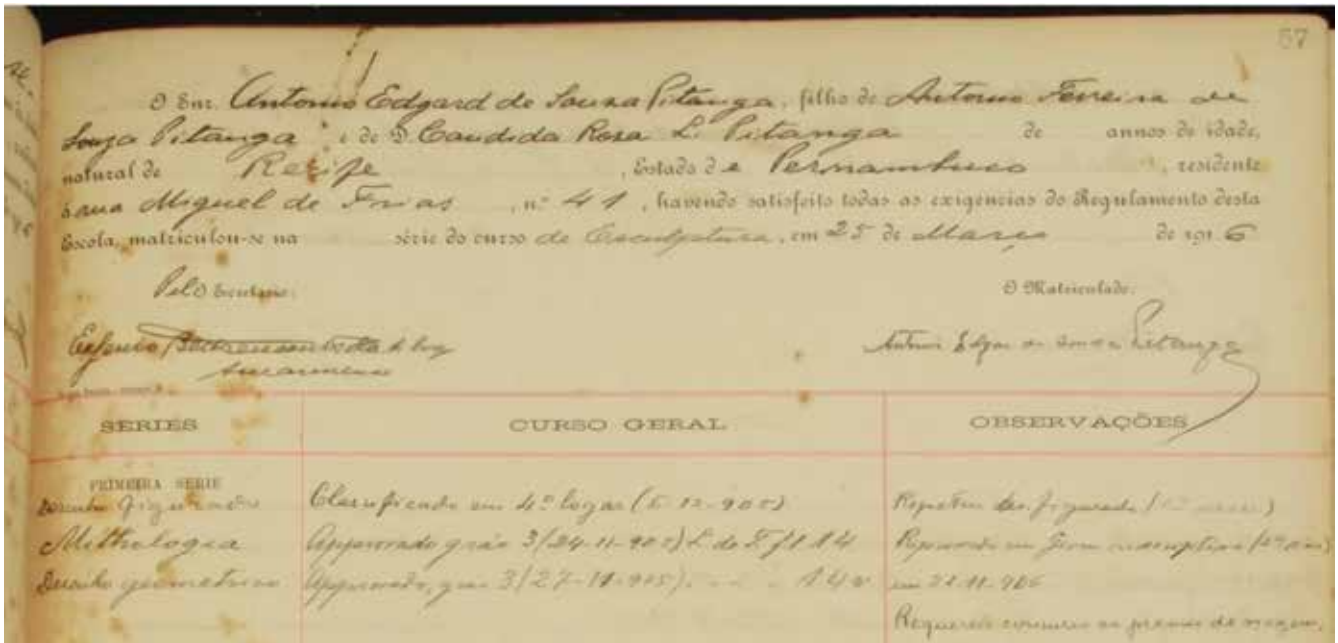 57
O Snr. Antonio Edgard de Souza Pitanga, filho de Antonio Ferreira de
Souza Pitanga e de D. Candida Rosa L. Pitanga de annos de idade,
natural de Recife, Estado de Pernambuco, residente
á rua Miguel de Frias, nº 41, havendo satisfeito todas as exigencias do Regulamento desta
Escola, matriculou-se na série do curso de Esculptura, em 25 de Março de 1916
Pelo Secretario: O Matriculado:
Antonio Edgar de Souza Pitanga
SERIES CURSO GERAL OBSERVAÇÕES
PRIMEIRA SERIE
Desenho figurado Classificado em 4º logar (5-12-905)
Mithologia Approvado gráo 3 (24-11-905) L. do F. fl 14
Desenho geometrico Approvado, gráo 3 (27-11-905) 14v em 22-11-906
Requereu concurso ao premio de viagem,